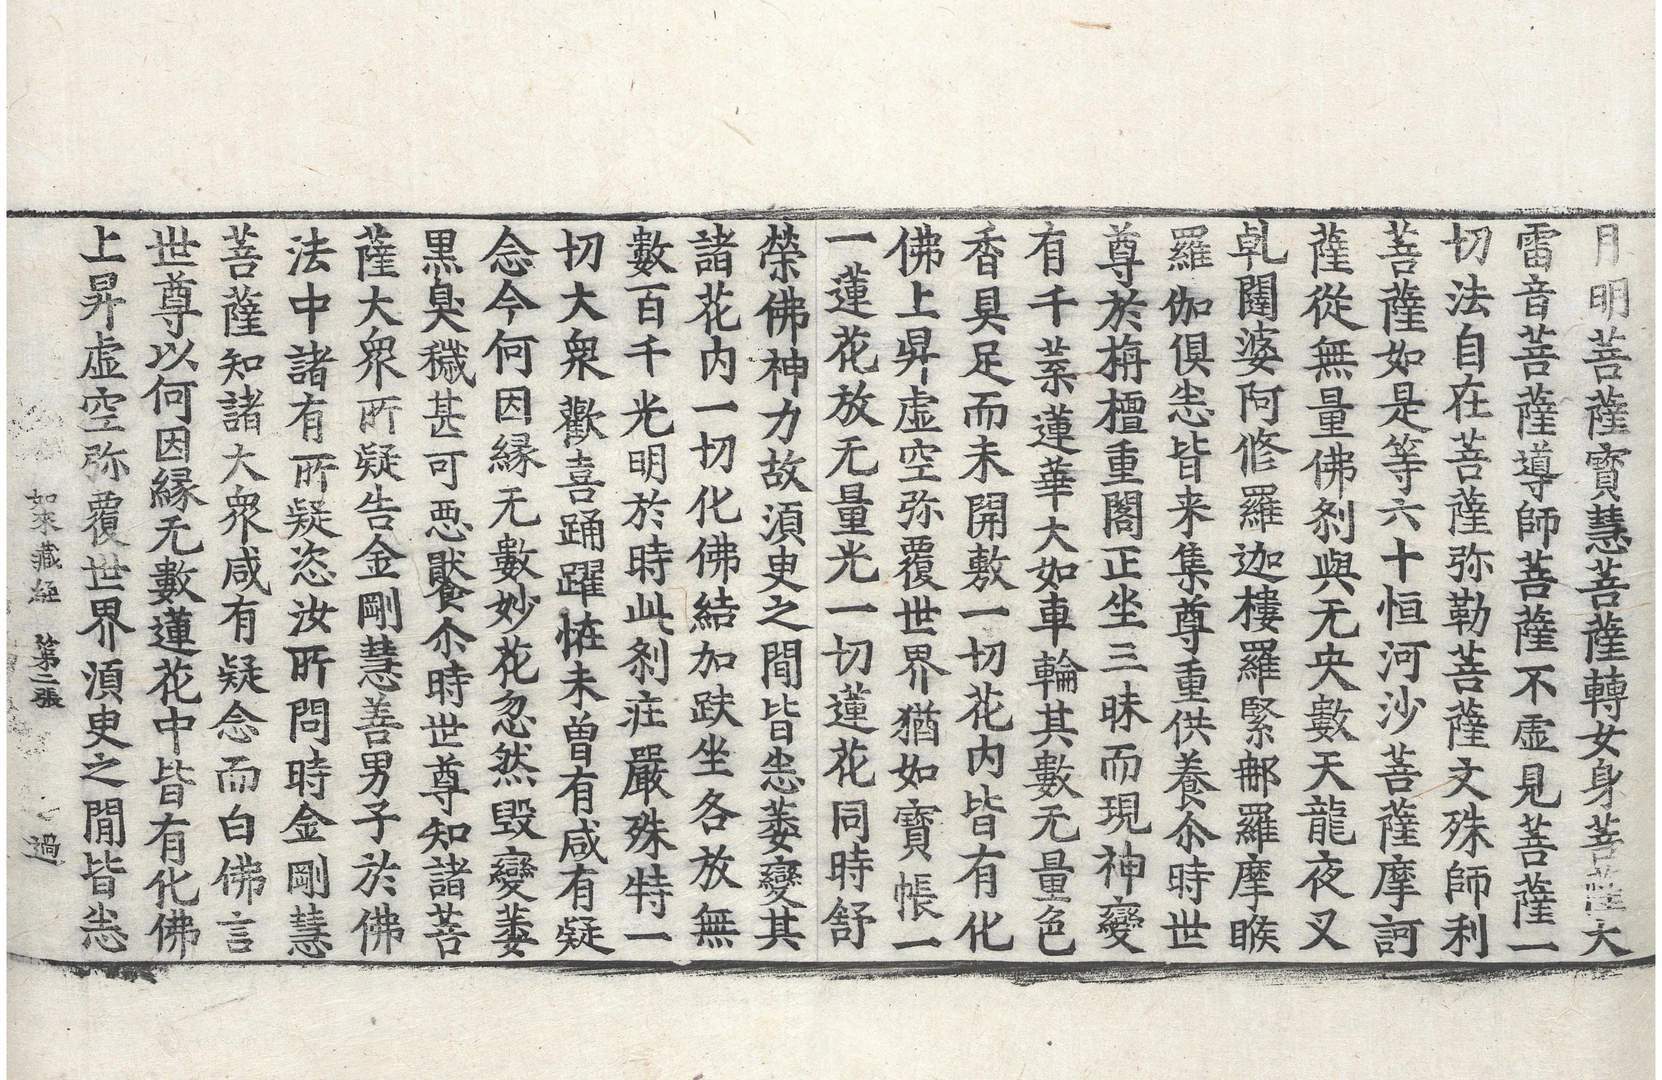 月明菩薩寳慧菩薩轉女身菩薩大
雷音菩薩導師菩薩不虚見菩薩一
切法自在菩薩弥勒菩薩文殊師利
菩薩如是等六十恒河沙菩薩摩訶
薩從無量佛刹與无央數天龍夜叉
乹闥婆阿修羅迦樓羅緊那羅摩睺
羅伽俱悉皆来集尊重供養尒時世
尊於栴檀重閣正坐三昧而現神變
有千葉蓮華大如車輪其數无量色
香具足而未開敷一切花内皆有化
佛上昇虚空弥覆世界猶如寳帳一
一蓮花放无量光一切蓮花同時舒
榮佛神力故湏臾之間皆悉萎變其
諸花内一切化佛結加趺坐各放無
數百千光明於時此刹疘嚴殊特一
切大衆歡喜踊躍恠未曽有咸有疑
念今何因縁无數妙花忽然毁變萎
黒臭穢甚可惡猒尒時世尊知諸菩
薩大衆所疑告金剛慧善男子於佛
法中諸有所疑恣汝所問時金剛慧
菩薩知諸大衆咸有疑念而白佛言
世尊以何因縁无數蓮花中皆有化佛
上昇虚空弥覆世界湏臾之間皆悉
如來藏經 第二張 過